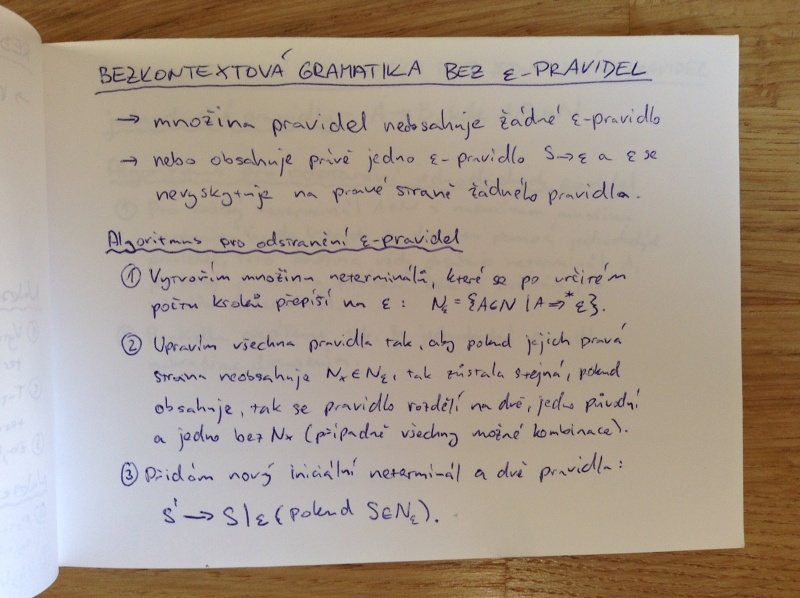 BEZKONTEXTOVÁ GRAMATIKA BEZ ε-PRAVIDEL
→ množina pravidel neobsahuje žádné ε-pravidlo
→ nebo obsahuje právě jedno ε-pravidlo S→ε a ε se
nevyskytuje na pravé straně žádného pravidla.
Algoritmus pro odstranění ε-pravidel
① Vytvořím množinu neterminálů, které se po určitém
počtu kroků přepíší na ε: Nε = {A∈N | A ⇒* ε}.
② Upravím všechna pravidla tak, aby pokud jejich pravá
strana neobsahuje Nx ∈ Nε, tak zůstala stejná, pokud
obsahuje, tak se pravidlo rozdělí na dvě, jedno původní
a jedno bez Nx (případně všechny možné kombinace).
③ Přidám nový iniciální neterminál a dvě pravidla:
S' → S | ε (pokud S∈Nε).